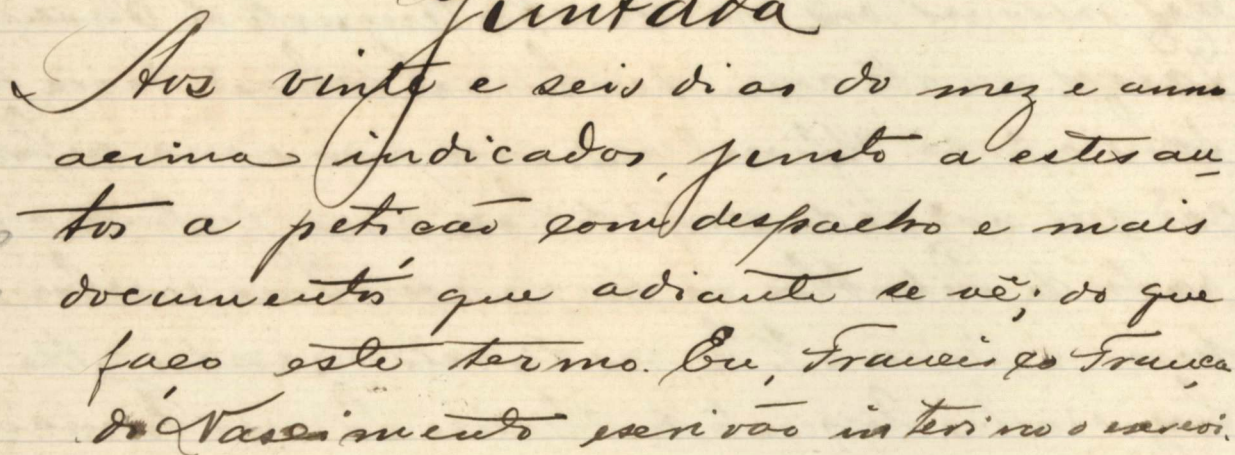 Juntada
Aos vinte e seis dias do mez e anno
acima indicados, junto a estes au-
tos a petição com despacho e mais
documentos que adiante se vê; do que
faço este termo. Eu, Francisco França
do Nascimento escrivão interino o escrevi.